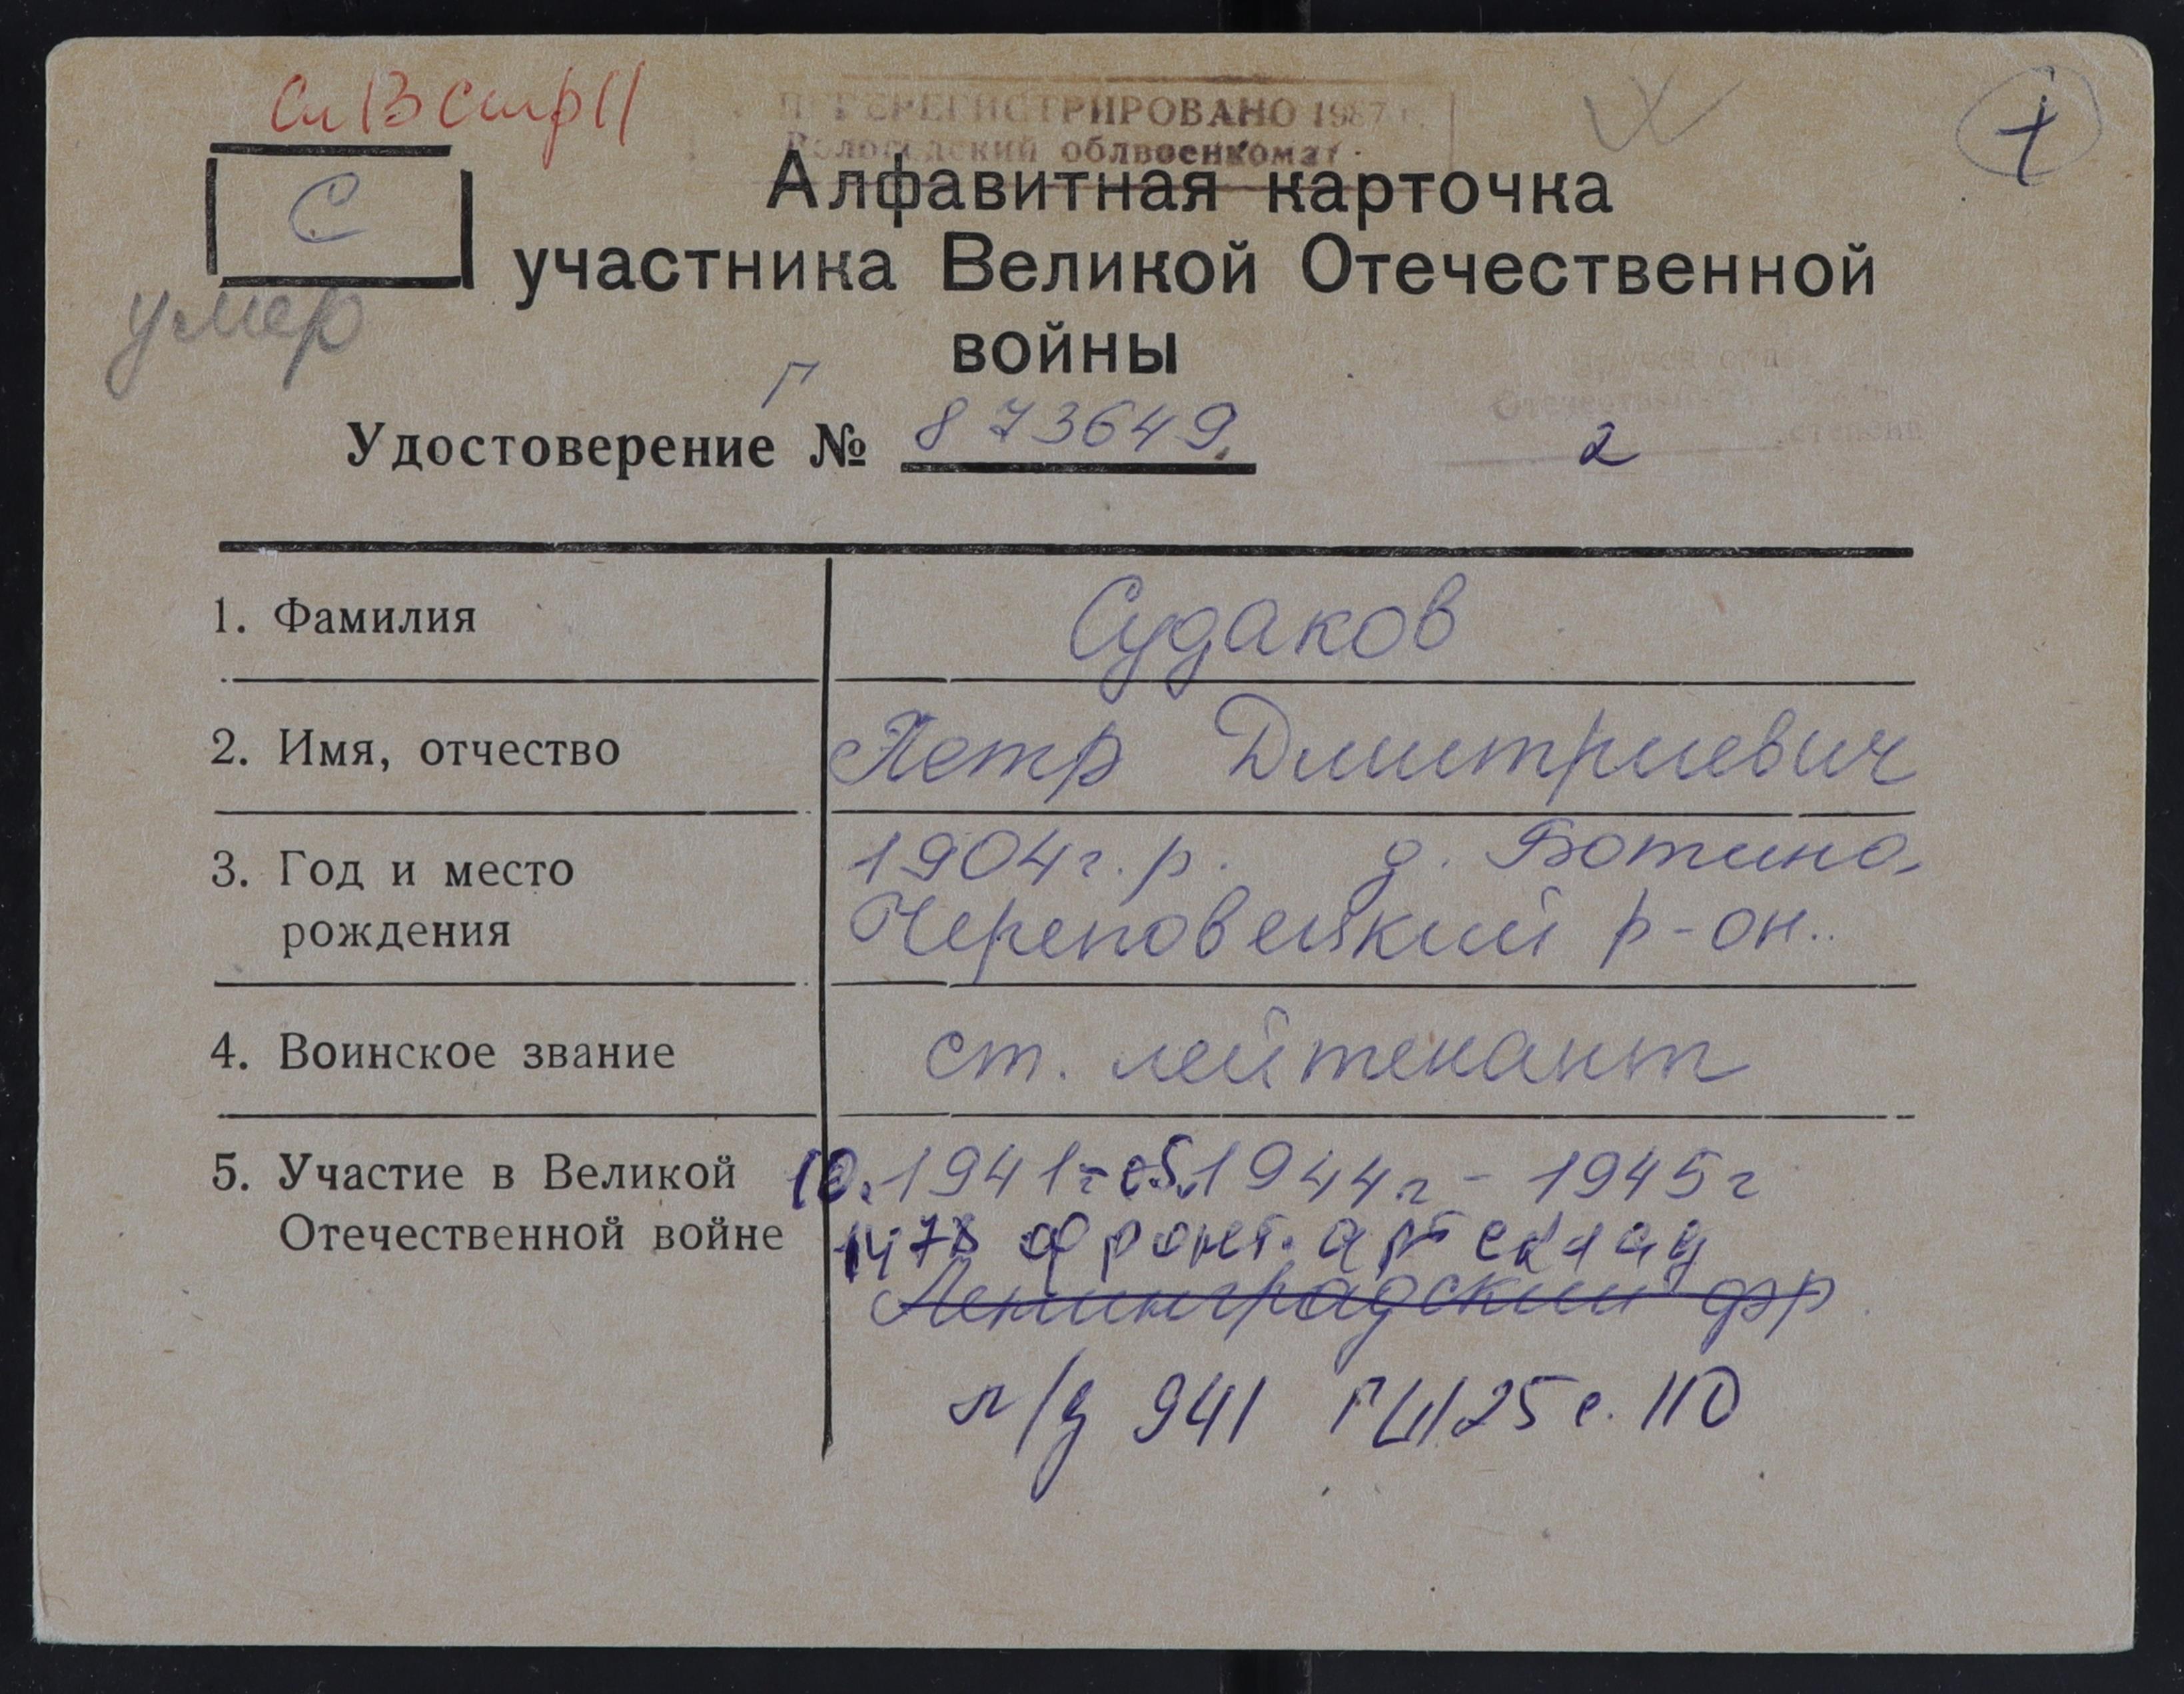 Сп 13 стр 11
ПЕРЕРЕГИСТРИРОВАНО 1987 г.
Вологодский облвоенкомат
С
Алфавитная карточка
участника Великой Отечественной
войны
умер
Г
Удостоверение № 873649.
Отечественной
2 степени
1. Фамилия Судаков
2. Имя, отчество Петр Дмитриевич
3. Год и место 1904 г.р. д. Ботино,
рождения Череповецкий р-он..
4. Воинское звание ст. лейтенант
5. Участие в Великой 10.1941г 1944г - 1945г
Отечественной войне 1478 фронт. арт склад
Ленинградский фр
л/д 941 ГШ 25 с. 110